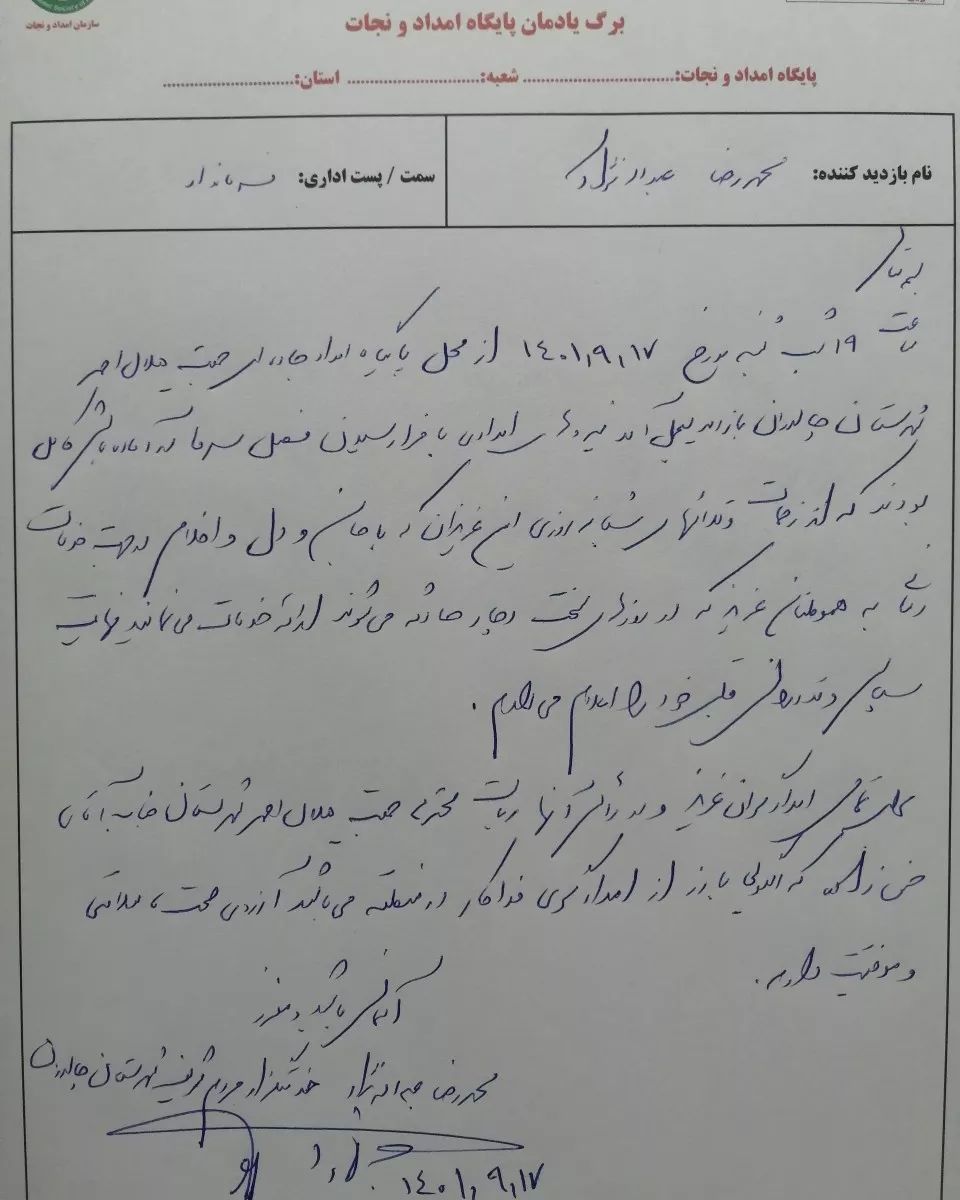 سازمان امداد و نجات
برگ یادمان پایگاه امداد و نجات
پایگاه امداد و نجات:................................ شعبه:............................ استان:............................
نام بازدید کننده: محمدرضا عبداله نژاد
سمت / پست اداری: فرماندار
بسمه تعالی
ساعت ۱۹ شب شنبه مورخ ۱۴۰۱,۹,۱۷ از محل پایگاه امداد جاده ای جمعیت هلال احمر
شهرستان چالدران بازدید بعمل آمد نیروهای امدادی با فرارسیدن فصل سرما در آماده باش کامل
بودند که از زحمات و تلاشهای شبانه روزی این عزیزان که با جان و دل و اخلاص در جهت خدمات
رسانی به هموطنان عزیز که در روزهای سخت دچار حادثه می شوند ارائه خدمات می نمایند نهایت
سپاس و قدردانی قلبی خود را اعلام می دارم .
برای تمامی امدادگران عزیز و در رأس آنها ریاست محترم جمعیت هلال احمر شهرستان جناب آقای
که الگوی بارز از امدادگری فداکار در منطقه می باشد آرزوی صحت ، سلامتی
و موفقیت دارم .
باشید
محمدرضا عبداله نژاد خدمتگزار مردم شریف شهرستان چالدران
۱۴۰۱,۹,۱۷